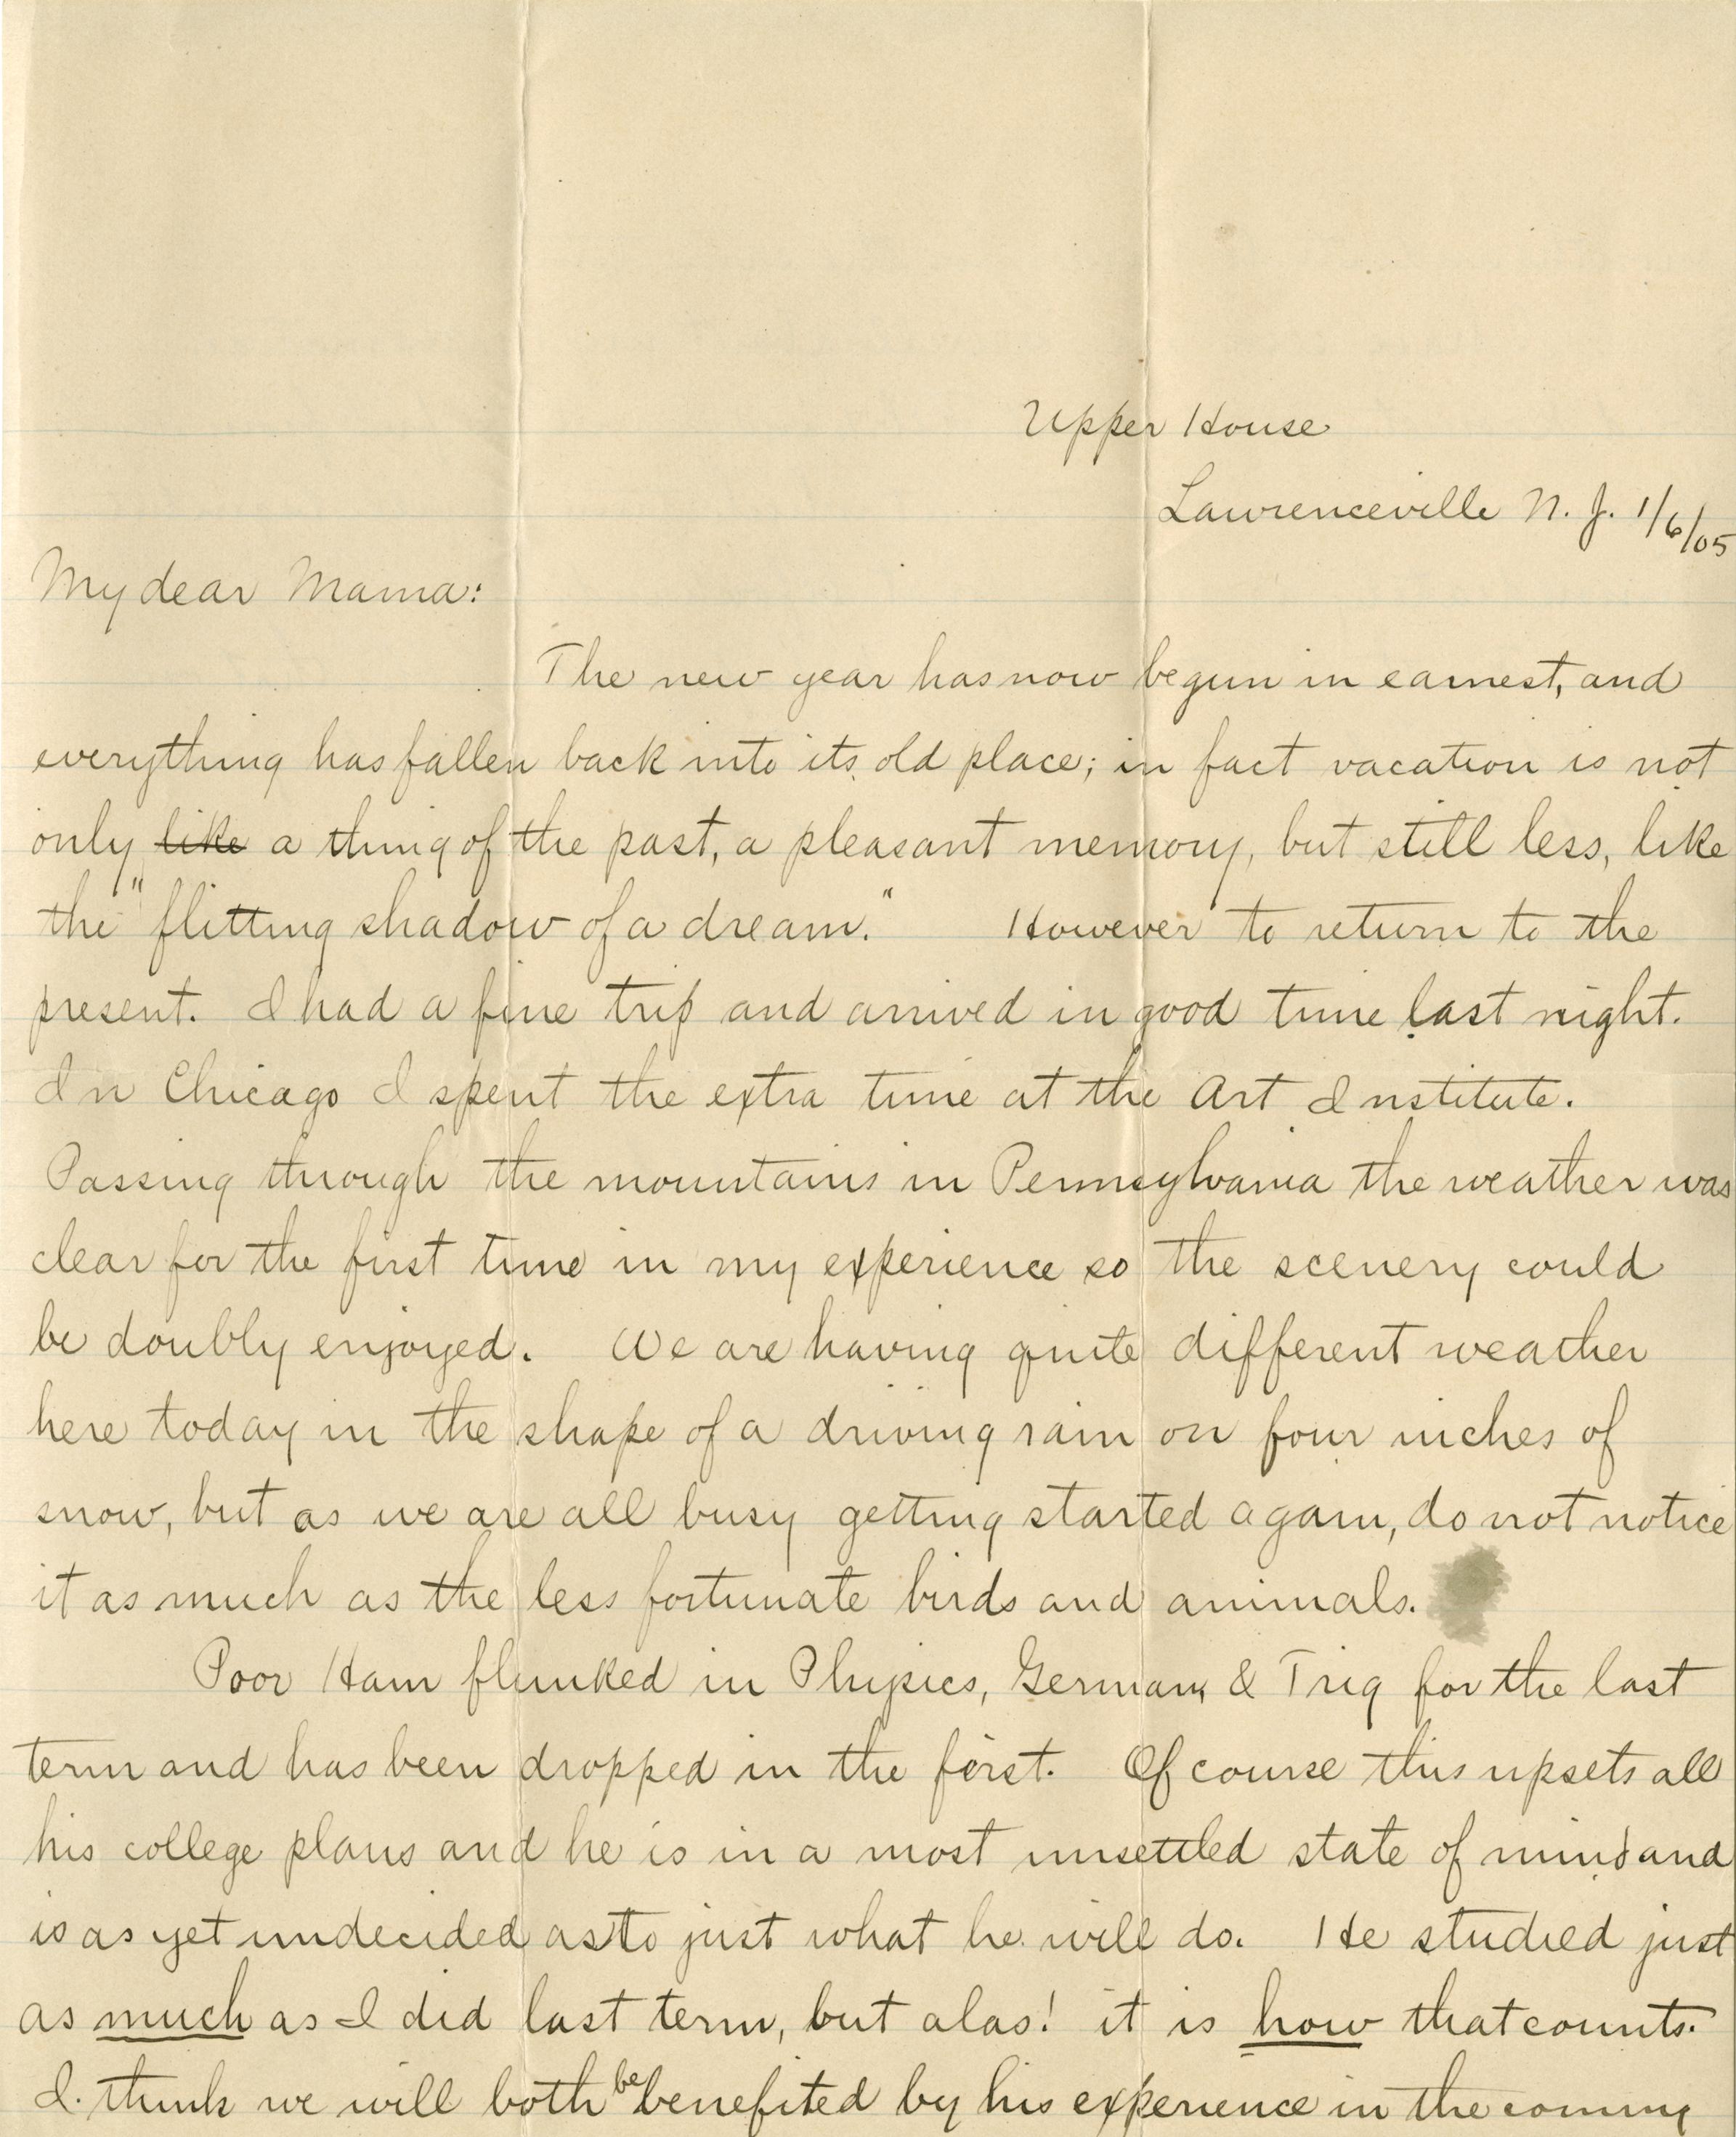 Upper House
Lawrenceville N. J. 1/6/05
My dear Mama:
The new year has now begun in earnest, and
everything has fallen back into its old place; in fact vacation is not
only ~~like~~ a thing of the past, a pleasant memory, but still less, like
the "flitting shadow of a dream." However to return to the
present. I had a fine trip and arrived in good time last night.
In Chicago I spent the extra time at the Art Institute.
Passing through the mountains in Pennsylvania the weather was
clear for the first time in my experience so the scenery could
be doubly enjoyed. We are having quite different weather
here today in the shape of a driving rain on four inches of
snow, but as we are all busy getting started again, do not notice
it as much as the less fortunate birds and animals.
Poor Ham flunked in Physics, German & Trig for the last
term and has been dropped in the first. Of course this upsets all
his college plans and he is in a most unsettled state of mind and
is as yet undecided as to just what he will do. He studied just
as much as I did last term, but alas! it is how that counts.
I think we will both be benefited by his experience in the coming